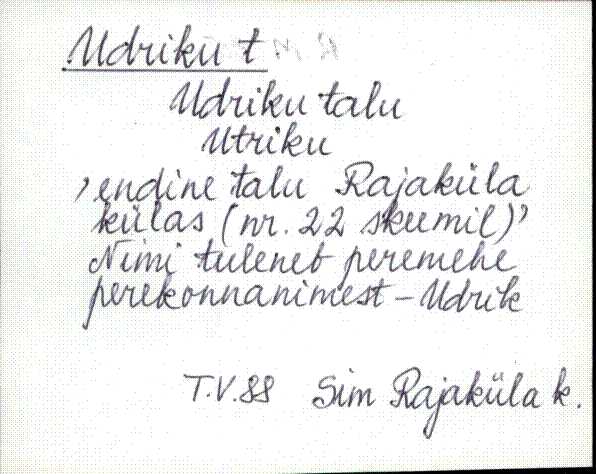 Udriku t
Udriku talu
Utriku
, endine talu Rajaküla
külas (nr. 22 skeemil)’
Nimi tuleneb peremehe
perekonnanimest – Udrik
T.V.88 Sim Rajaküla k.